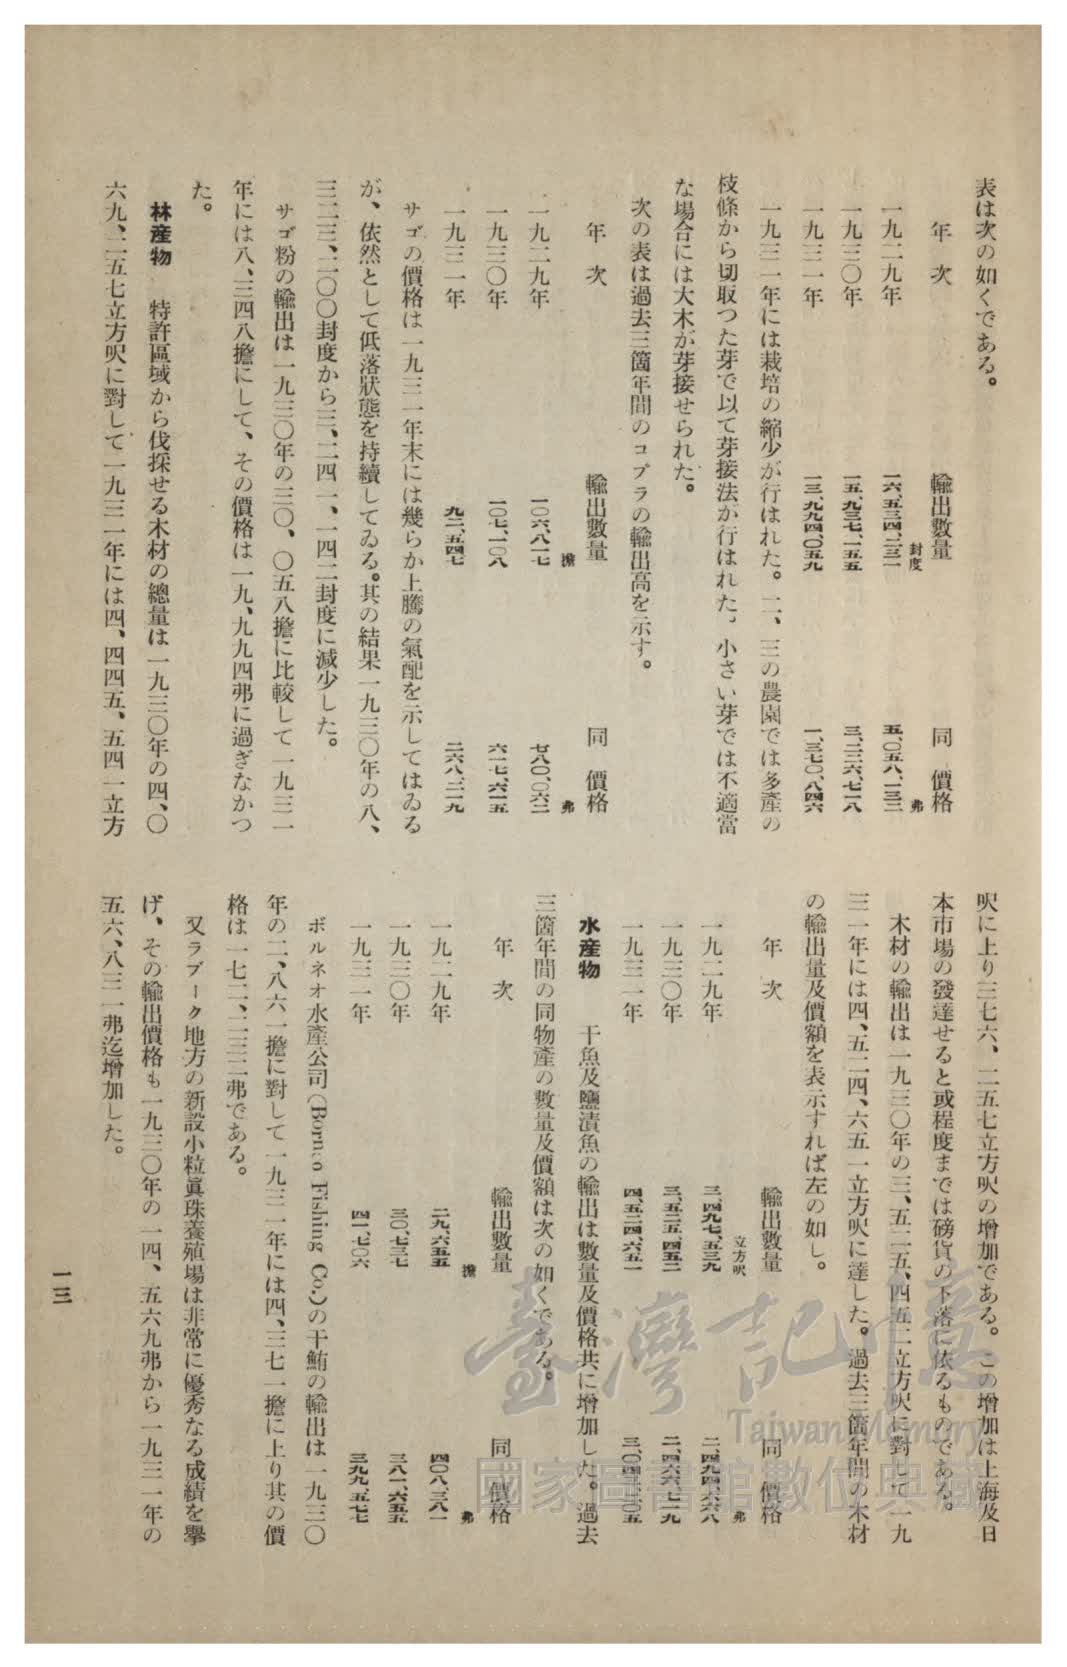 表は次の如くである。
年次　輸出數量　同價格
封度　弗
一九二九年　一六、五三四、二三一　五、〇五八、一三二
一九三〇年　一五、九三七、一五五　三、二三六、七一八
一九三一年　一三、九九四、〇五九　一、三七〇、八四六
一九三一年には栽培の縮少が行はれた。二、三の農園では多產の
枝條から切取つた芽で以て芽接法が行はれた。小さい芽では不適當
な場合には大木が芽接せられた。
次の表は過去三箇年間のコプラの輸出高を示す。
年次　輸出數量　同價格
擔　弗
一九二九年　一〇六、八一七　七八〇、〇六二
一九三〇年　一〇七、一〇八　六一七、六一五
一九三一年　九二、五四七　二六八、二一九
サゴの價格は一九三一年末には幾らか上騰の氣配を示してはゐる
が、依然として低落狀態を持續してゐる。其の結果一九三〇年の八、
三二三、二〇〇封度から三、二四一、一四二封度に減少した。
サゴ粉の輸出は一九三〇年の三〇、〇五八擔に比較して一九三一
年には八、三四八擔にして、その價格は一九、九九四弗に過ぎなかつ
た。
林産物　特許區域から伐採せる木材の總量は一九三〇年の四、〇
六九、二五七立方呎に對して一九三一年には四、四四五、五四一立方
呎に上り三七六、二五七立方呎の增加である。この增加は上海及日
本市場の發達せると或程度までは磅貨の下落に依るものである。
木材の輸出は一九三〇年の三、五二五、四五二立方呎に對して一九
三一年には四、五二四、六五一立方呎に達した。過去三箇年間の木材
の輸出量及價額を表示すれば左の如し。
年次　輸出數量　同價格
立方呎　弗
一九二九年　三、四九七、五三九　二、四九四、六六八
一九三〇年　三、五二五、四五二　二、四六六、七一九
一九三一年　四、五二四、六五一　三、〇四三、三〇五
水産物　干魚及鹽漬魚の輸出は數量及價格共に增加した。過去
三箇年間の同物產の數量及價額は次の如くである。
年次　輸出數量　同價格
擔　弗
一九二九年　二九、六五五　四〇八、三八一
一九三〇年　三〇、七三七　三八一、六五五
一九三一年　四一、七〇六　三九九、五七七
ボルネオ水產公司（Borneo Fishing Co.）の干鮪の輸出は一九三〇
年の二、八六一擔に對して一九三一年には四、三七一擔に上り其の價
格は一七二、二三二弗である。
又ラブーク地方の新設小粒眞珠養殖場は非常に優秀なる成績を擧
げ、その輸出價格も一九三〇年の一四、五六九弗から一九三一年の
五六、八三一弗迄增加した。
一三
臺灣記憶
Taiwan Memory
國家圖書館數位典藏